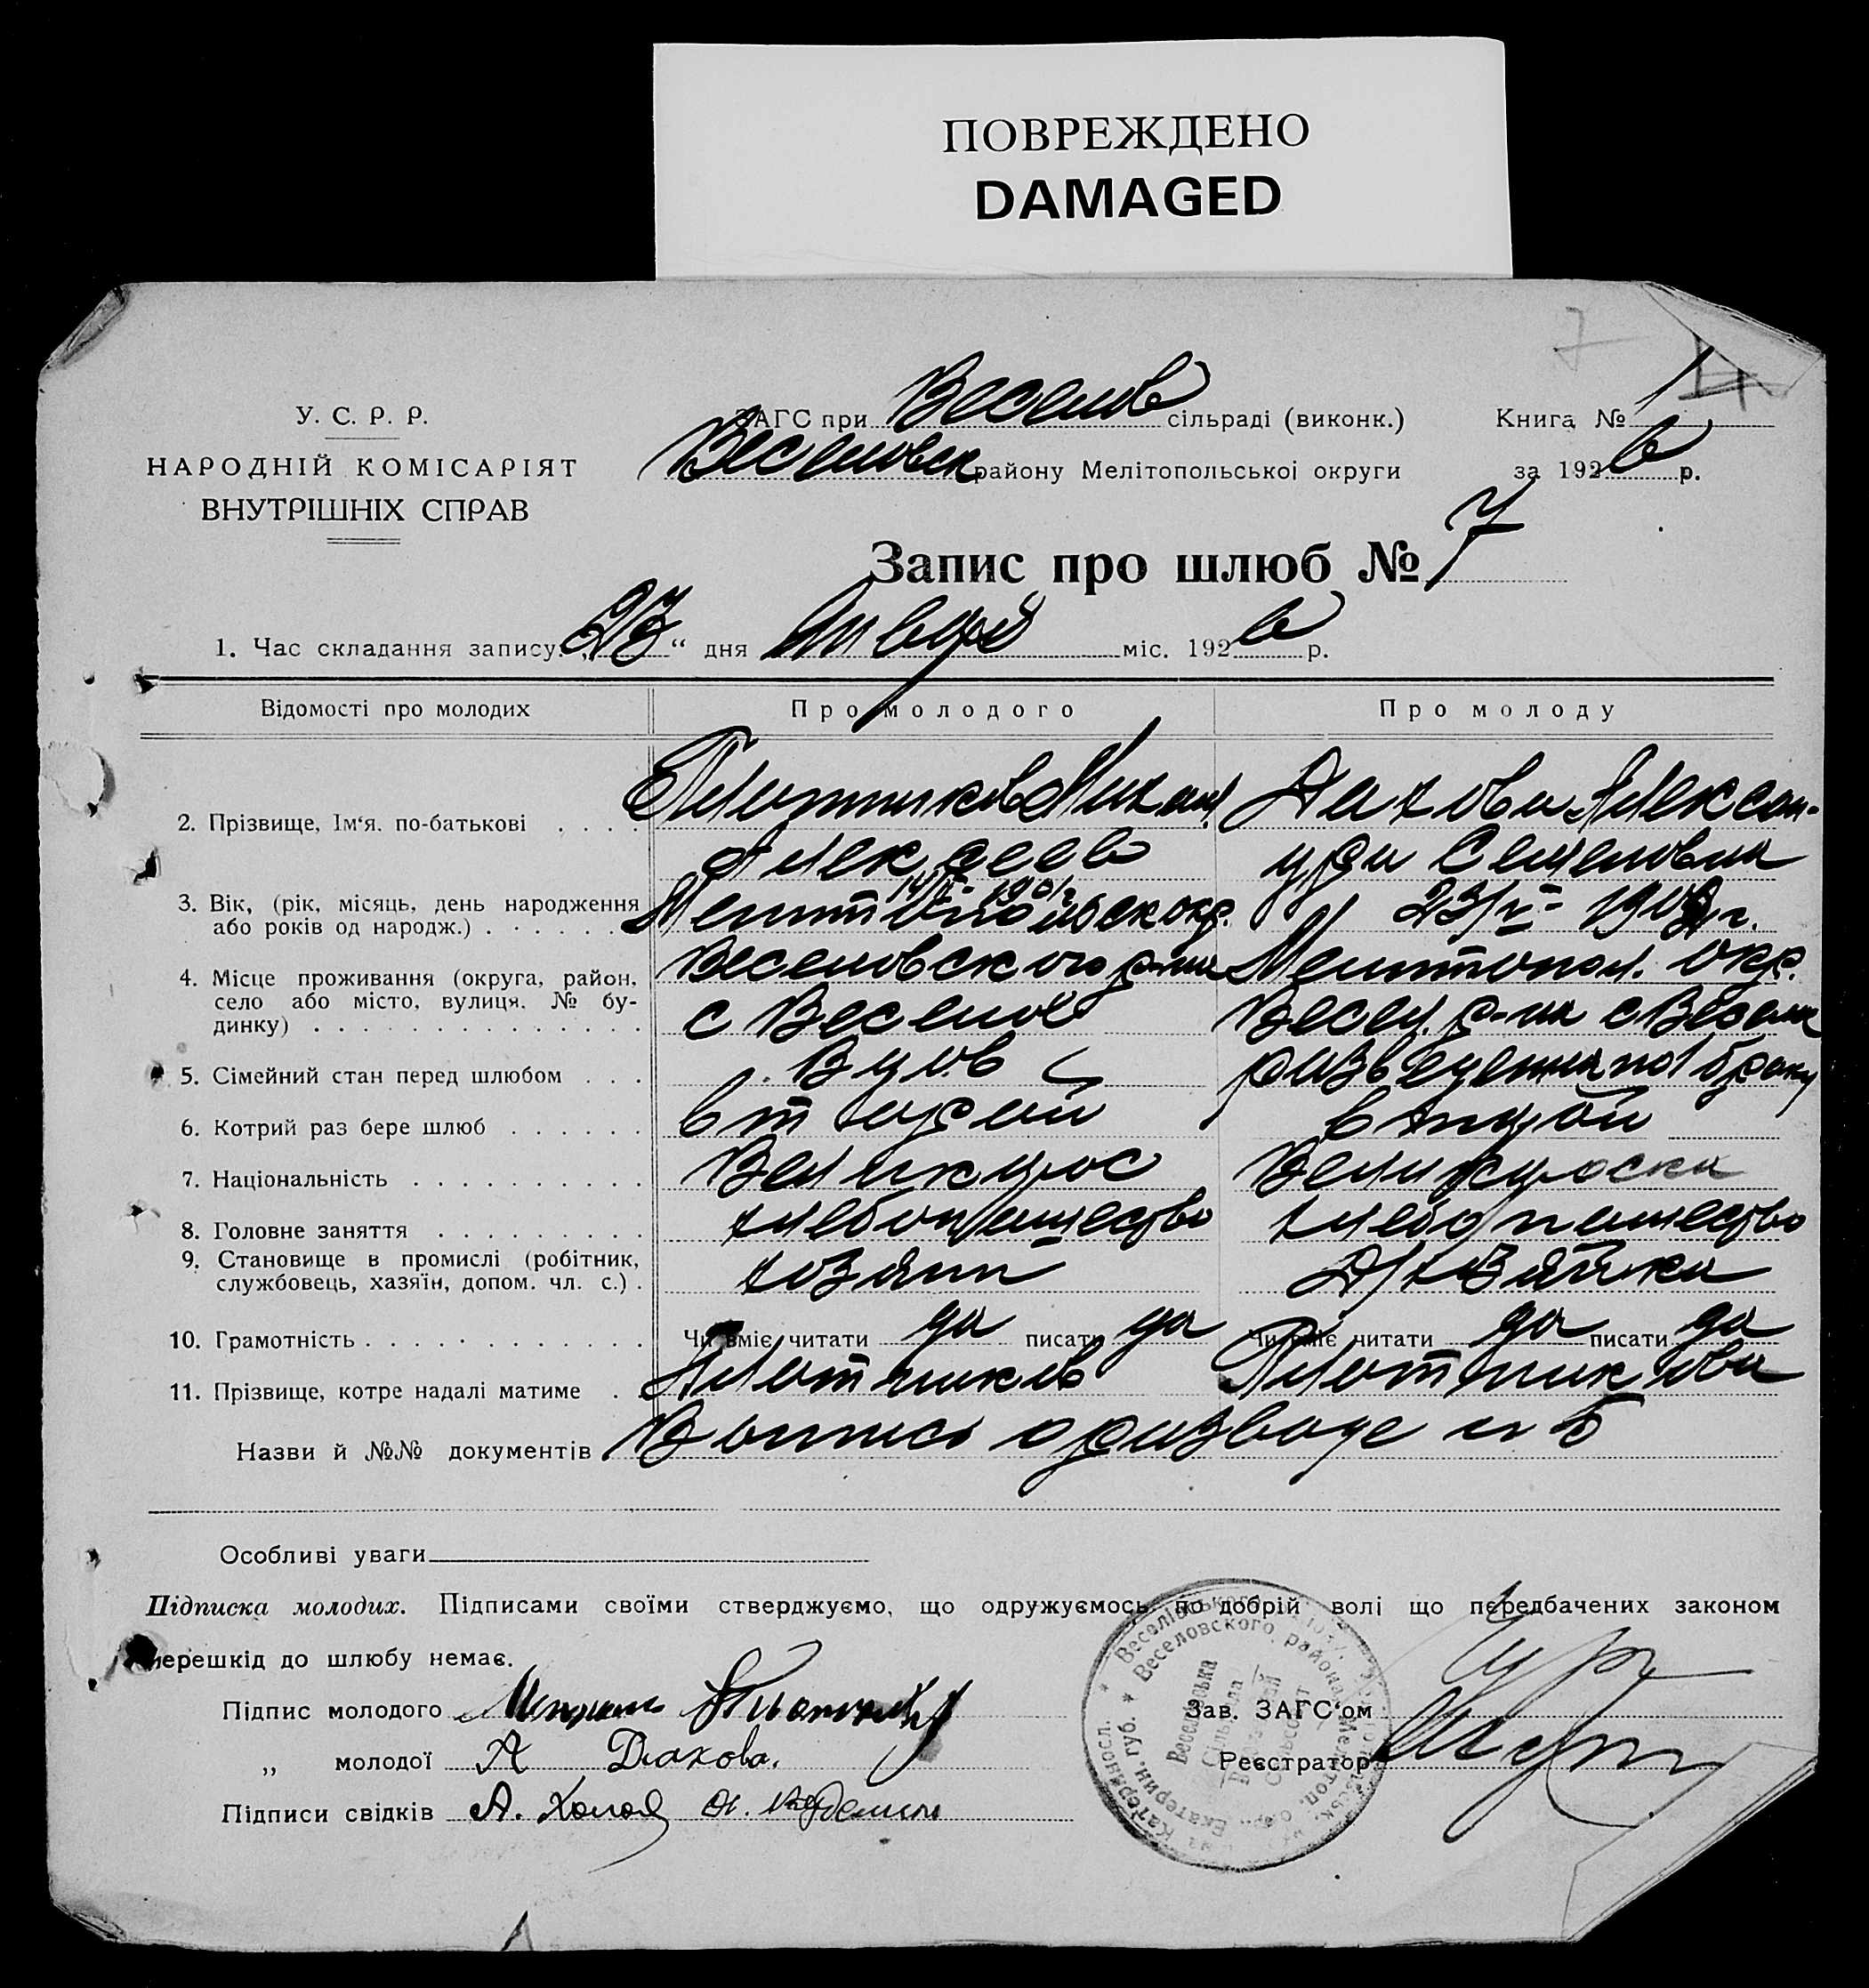 ПОВРЕЖДЕНО
DAMAGED
7
У. С. Р. Р.
НАРОДНІЙ КОМІСАРІЯТ
ВНУТРІШНІХ СПРАВ
ЗАГС при Веселов сільраді (виконк.) Книга № 1
Веселовск району Мелітопольськоі округи за 1926 р.
Запис про шлюб № 7
1. Час складання запису: „23“ дня Января міс. 1926 р.
Відомості про молодих Про молодого Про молоду
2. Прізвище, Ім‘я. по-батькові Плотников Михаил Дахова Алексан-
Алексеев дра Семеновна
3. Вік, (рік, місяць, день народження або років од народж.) 1901 г. Мелитопольск окр. 23/V- г.
4. Місце проживання (округа, район, село або місто, вулиця. № будинку) Веселовского р-на Мелитопол. окр.
с Веселое Весел. р-на с Веселое
5. Сімейний стан перед шлюбом Вдов разведенная по браку
6. Котрий раз бере шлюб второй второй
7. Національність Великорос Великороска
8. Головне заняття хлебопашество хлебопашество
9. Становище в промислі (робітник, службовець, хазяїн, допом. чл. с.) хозяин Д/хозяйка
10. Грамотність Чи вміє читати да писати да Чи вміє читати да писати да
11. Прізвище, котре надалі матиме Плотников Плотникова
Назви й №№ документів Выпись о разводе н 5
Особливі уваги
Підписка молодих. Підписами своїми стверджуємо, що одружуємось по добрій волі що передбачених законом
перешкід до шлюбу немає.
Підпис молодого Михаил Плотников
„ молодої А Дахова.
Підписи свідків А.
Зав. ЗАГС‘ом
Реєстратор
Веселівська Сільрада
Веселовского района Мелитоп. окр. Екатерин. губ.